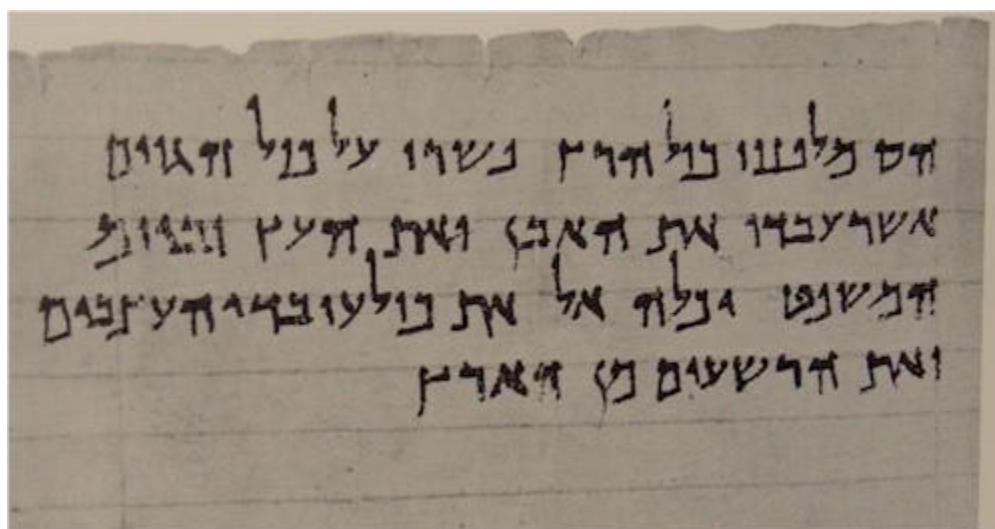 הס מלפניו כול הרץ פשרו על כול הגוים
אשר עבדו את האבן ואת העץ וביום
המשפט יכלה אל את כול עובדי העצבים
ואת הרשעים מן הארץ